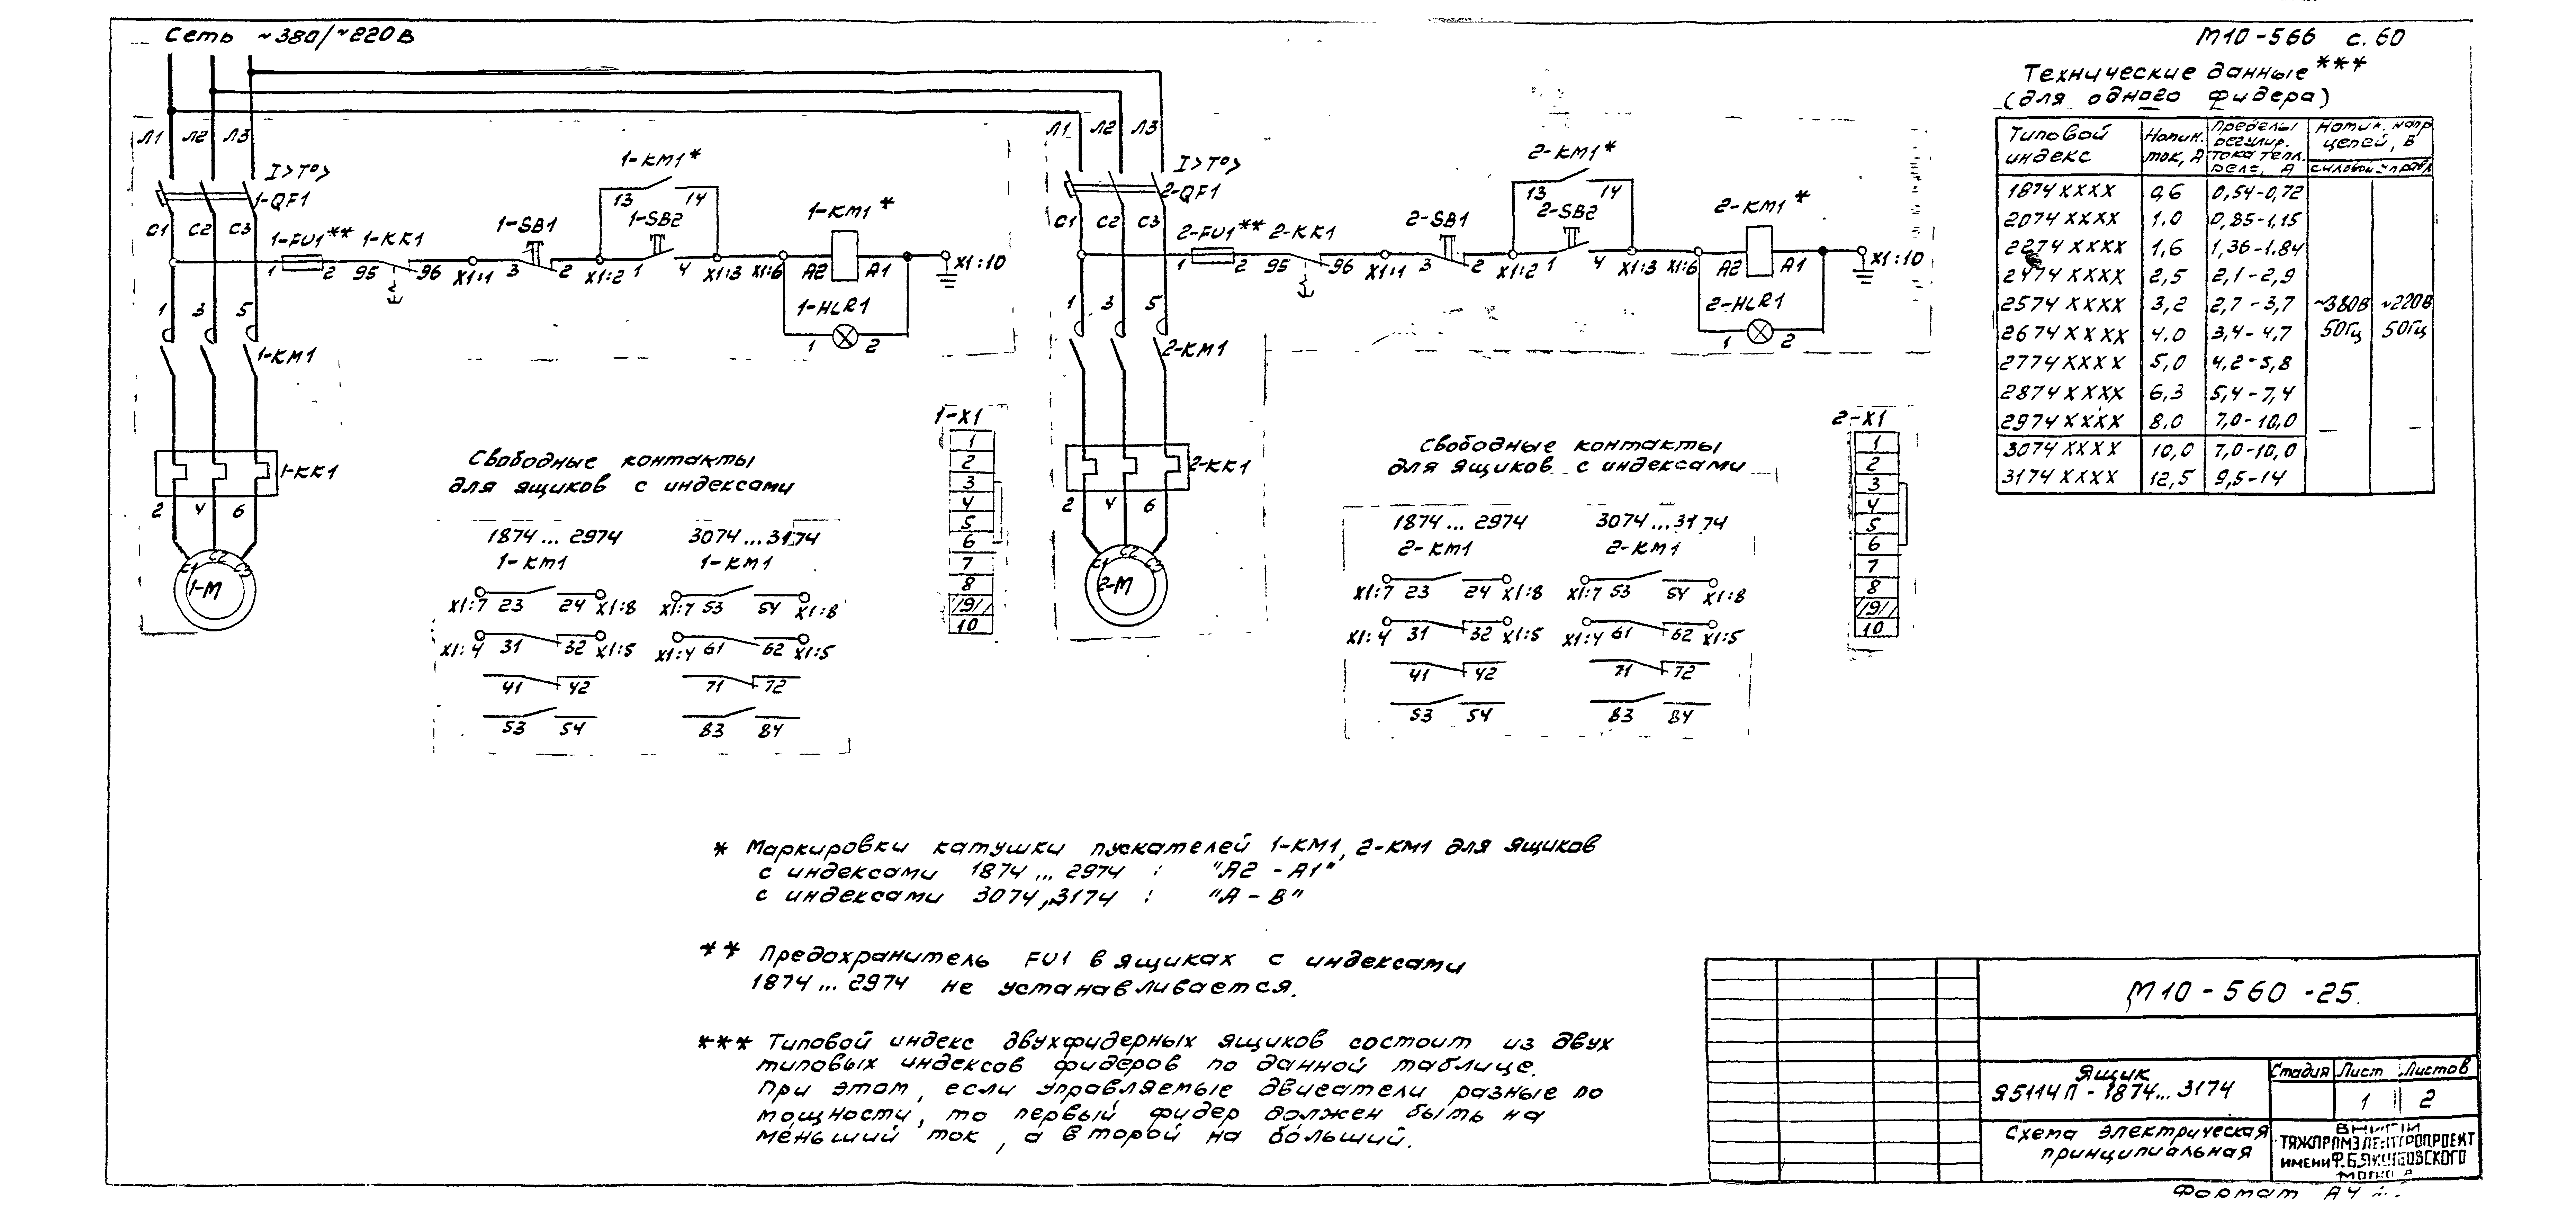 Сеть ~380/~220В
М10-566 с. 60
Технические данные***
(для одного фидера)
Типовой индекс | Номин. ток, А | Пределы регулир. тока тепл. реле, А | Номин. напр цепей, В
силовой | управл
1874XXXX 0,6 0,54-0,72
2074XXXX 1,0 0,85-1,15
2274XXXX 1,6 1,36-1,84
2474XXXX 2,5 2,1-2,9
2574XXXX 3,2 2,7-3,7 ~380В ~220В
2674XXXX 4,0 3,4-4,7 50Гц 50Гц
2774XXXX 5,0 4,2-5,8
2874XXXX 6,3 5,4-7,4
2974XXXX 8,0 7,0-10,0
3074XXXX 10,0 7,0-10,0
3174XXXX 12,5 9,5-14
Л1 Л2 Л3
I>T°>
1-QF1
С1 С2 С3
1-FU1** 1-КК1
1 2 95 96 X1:1
1-SB1
3 2 X1:2
1-КМ1*
13 14
1-SB2
1 4 X1:3 X1:6
1-КМ1*
А2 А1 X1:10
1-HLR1
1 2
1 3 5
1-КМ1
1-КК1
2 4 6
С1 С2 С3
1-М
Свободные контакты
для ящиков с индексами
1874...2974 3074...3174
1-КМ1 1-КМ1
X1:7 23 24 X1:8 X1:7 53 54 X1:8
X1:4 31 32 X1:5 X1:4 61 62 X1:5
41 42 71 72
53 54 83 84
1-X1
1
2
3
4
5
6
7
8
/9/
10
Л1 Л2 Л3
I>T°>
2-QF1
С1 С2 С3
2-FU1** 2-КК1
1 2 95 96 X1:1
2-SB1
3 2 X1:2
2-КМ1*
13 14
2-SB2
1 4 X1:3 X1:6
2-КМ1*
А2 А1 X1:10
2-HLR1
1 2
1 3 5
2-КМ1
2-КК1
2 4 6
С1 С2 С3
2-М
Свободные контакты
для ящиков с индексами
1874...2974 3074...3174
2-КМ1 2-КМ1
X1:7 23 24 X1:8 X1:7 53 54 X1:8
X1:4 31 32 X1:5 X1:4 61 62 X1:5
41 42 71 72
53 54 83 84
2-X1
1
2
3
4
5
6
7
8
/9/
10
* Маркировки катушки пускателей 1-КМ1, 2-КМ1 для ящиков
с индексами 1874...2974 : "А2 - А1"
с индексами 3074,3174 : "А - В"
** Предохранитель FU1 в ящиках с индексами
1874...2974 не устанавливается.
*** Типовой индекс двухфидерных ящиков состоит из двух
типовых индексов фидеров по данной таблице.
При этом, если управляемые двигатели разные по
мощности, то первый фидер должен быть на
меньший ток, а второй на больший.
М10-560-25.
Ящик
Я5114П-1874...3174
Стадия Лист Листов
1 2
Схема электрическая
принципиальная
ВНИПИ
ТЯЖПРОМЭЛЕКТРОПРОЕКТ
ИМЕНИ Ф.Б.ЯКУБОВСКОГО
Формат А4